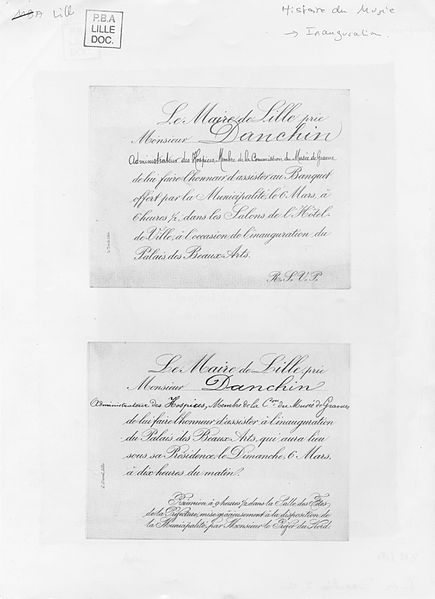 MBA Lill
P.B.A
LILLE
DOC.
Histoire du Musée
→ Inauguration
Le Maire de Lille prie
Monsieur Danchin
Administrateur des Hospices, Membre de la Commission du Musée de Gravure
de lui faire l'honneur d'assister au Banquet
offert par la Municipalité, le 6 Mars, à
6 heures ½, dans les Salons de l'Hôtel-
de-Ville, à l'occasion de l'inauguration du
Palais des Beaux-Arts.
R.S.V.P.
Le Maire de Lille prie
Monsieur Danchin
Administrateur des Hospices, Membre de la Con du Musée de Gravures
de lui faire l'honneur d'assister à l'inauguration
du Palais des Beaux-Arts, qui aura lieu
sous sa Présidence, le Dimanche, 6 Mars,
à dix heures du matin.
Réunion à 9 heures ½, dans la Salle des Fêtes
de la Préfecture, mise gracieusement à la disposition de
la Municipalité, par Monsieur le Préfet du Nord.